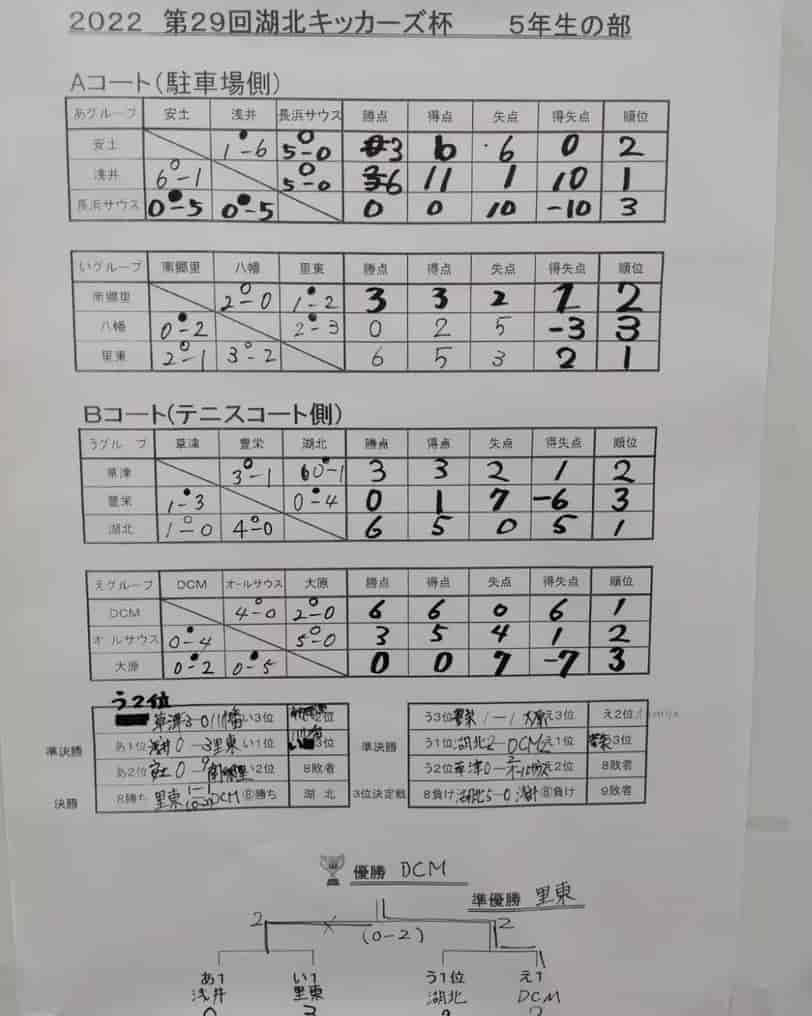 2022 第29回湖北キッカーズ杯 5年生の部
Aコート(駐車場側)
あグループ 安土 浅井 長浜サウス 勝点 得点 失点 得失点 順位
安土 1-6 5-0 3 6 6 0 2
浅井 6-1 5-0 6 11 1 10 1
長浜サウス 0-5 0-5 0 0 10 -10 3
いグループ 南郷里 八幡 里東 勝点 得点 失点 得失点 順位
南郷里 2-0 1-2 3 3 2 1 2
八幡 0-2 2-3 0 2 5 -3 3
里東 2-1 3-2 6 5 3 2 1
Bコート(テニスコート側)
うグループ 草津 豊栄 湖北 勝点 得点 失点 得失点 順位
草津 3-1 0-1 3 3 2 1 2
豊栄 1-3 0-4 0 1 7 -6 3
湖北 1-0 4-0 6 5 0 5 1
えグループ DCM オールサウス 大原 勝点 得点 失点 得失点 順位
DCM 4-0 2-0 6 6 0 6 1
オールサウス 0-4 5-0 3 5 4 1 2
大原 0-2 0-5 0 0 7 -7 3
う2位
草津3-0八幡 い3位 2位
う3位 豊栄1-1大原 え3位 え2位
準決勝 あ1位 浅井0-3里東 い1位 3位
準決勝 う1位 湖北2-DCM え1位 豊栄3位
あ2位 安土0- 南郷里 い2位 8敗者
う2位 草津0-2 え2位 8敗者
決勝 8勝ち 里東 1-1 DCM ⑧勝ち 湖北
3位決定戦 8負け 湖北5-0浅井 ⑧負け 9敗者
優勝 DCM
準優勝 里東
2 (0-2) 2
あ1 い1 う1位 え1
浅井 里東 湖北 DCM